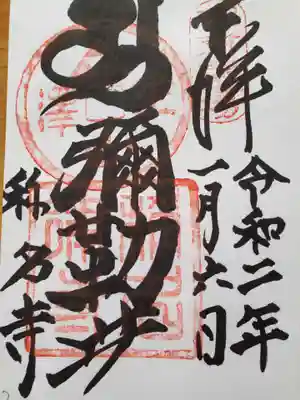 奉拝
令和二年
一月六日
彌勒
称名寺